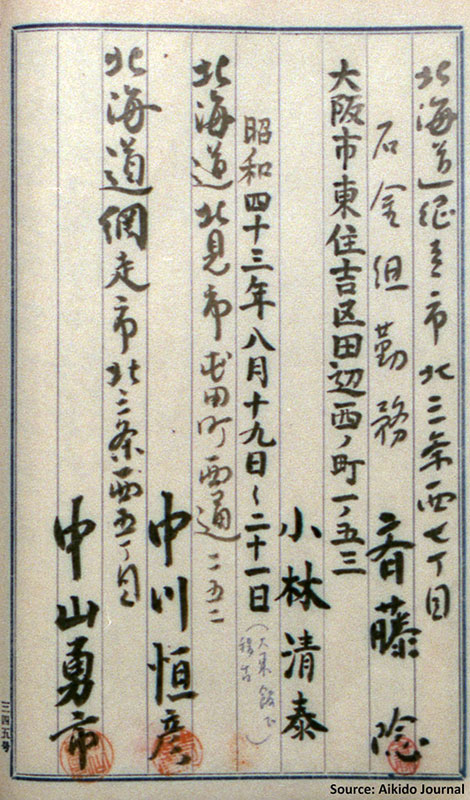 北海道網走市北三条西七丁目
組勤務
斉藤
大阪市東住吉区田辺西ノ町一ノ五三
小林清泰
昭和四十三年八月十九日〜二十一日
稽古)
北海道北見市屯田町西通二五二
中川恒彦
北海道網走市北三条西五丁目
中山勇市
三四五号
Source: Aikido Journal